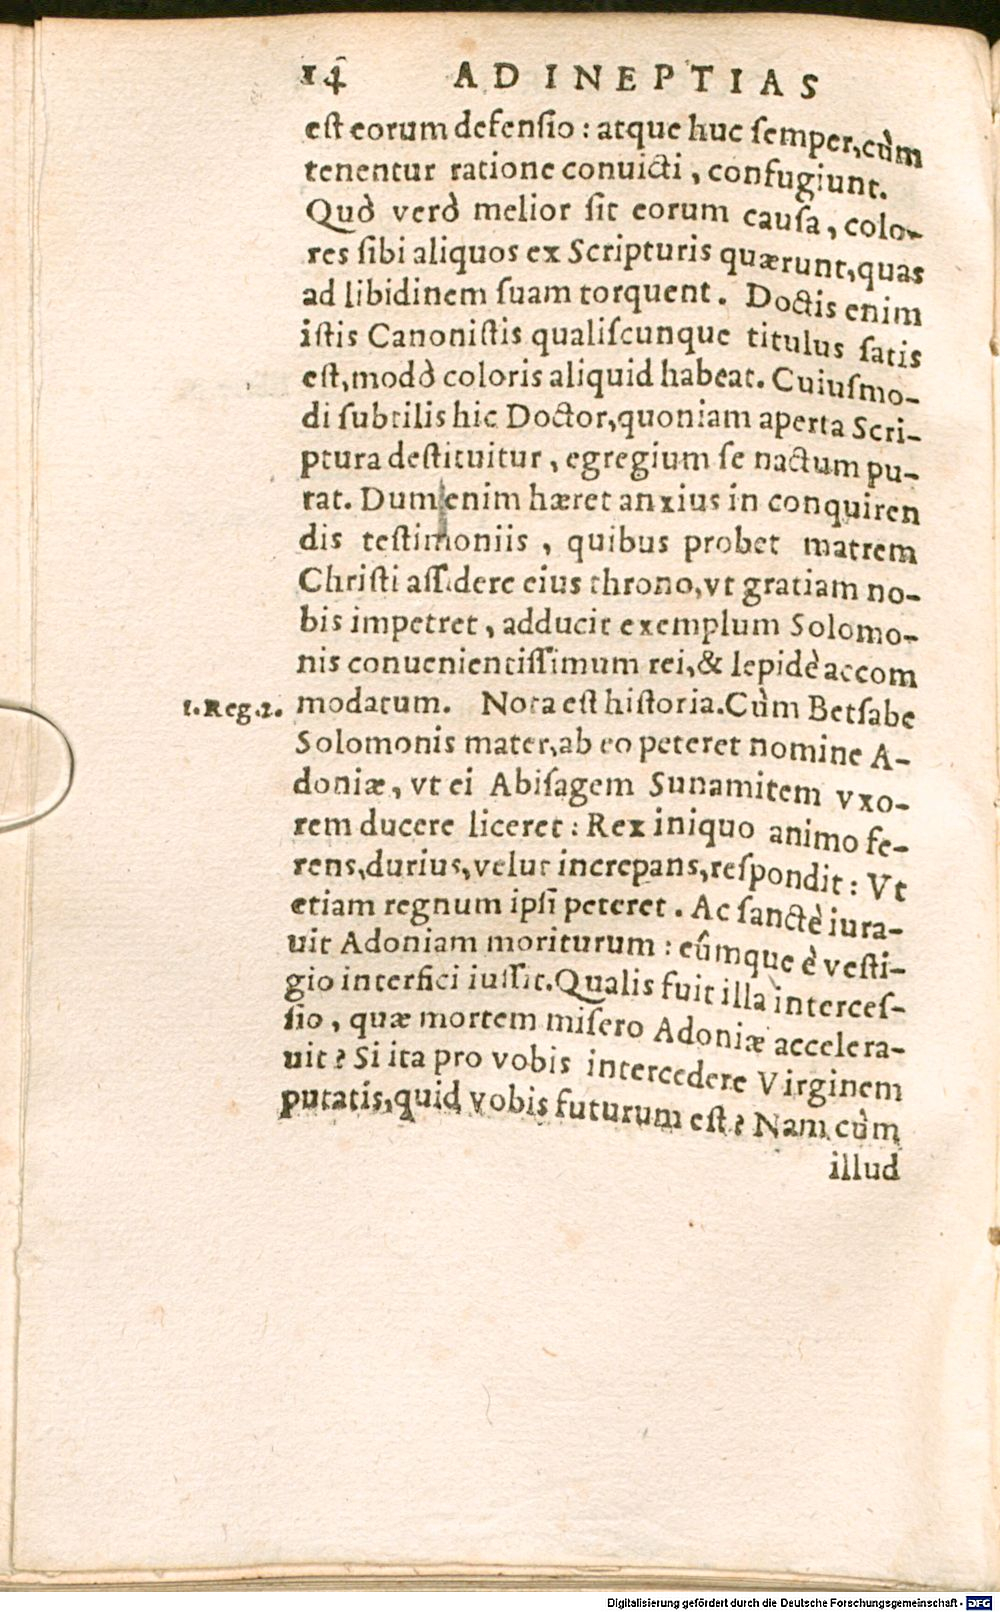 14 AD INEPTIAS
est eorum defensio : atque huc semper, cùm
tenentur ratione conuicti, confugiunt.
Quò verò melior sit eorum causa, colo-
res sibi aliquos ex Scripturis quærunt, quas
ad libidinem suam torquent. Doctis enim
istis Canonistis qualiscunque titulus satis
est, modò coloris aliquid habeat. Cuiusmo-
di subtilis hic Doctor, quoniam aperta Scri-
ptura destituitur, egregium se nactum pu-
tat. Dum enim hæret anxius in conquiren
dis testimoniis, quibus probet matrem
Christi assidere eius throno, vt gratiam no-
bis impetret, adducit exemplum Solomo-
nis conuenientissimum rei, & lepidè accom
1. Reg. 2. modatum. Nota est historia. Cùm Betsabe
Solomonis mater, ab eo peteret nomine A-
doniæ, vt ei Abisagem Sunamitem vxo-
rem ducere liceret : Rex iniquo animo fe-
rens, durius, velut increpans, respondit : Vt
etiam regnum ipsi peteret. Ac sanctè iura-
uit Adoniam moriturum : eûmque è vesti-
gio interfici iussit. Qualis fuit illa interces-
sio, quæ mortem misero Adoniæ accelera-
uit? Si ita pro vobis intercedere Virginem
putatis, quid vobis futurum est? Nam cùm
illud
Digitalisierung gefördert durch die Deutsche Forschungsgemeinschaft - DFG